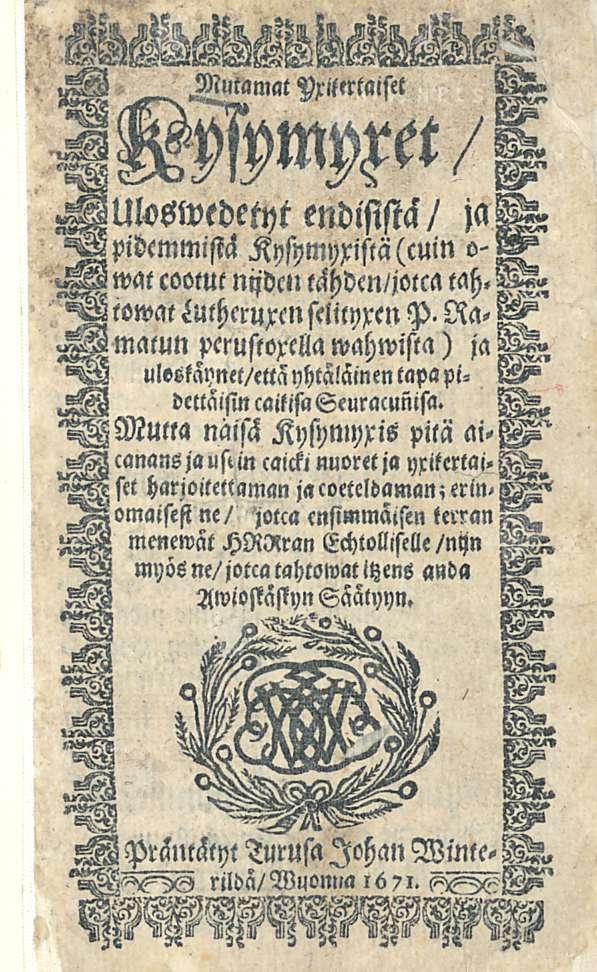 Mutamat Yxikertaiset
Kysymyxet /
Uloswedetyt endisistä / ja
pidemmistä Kysymyxistä (cuin o-
wat cootut nijden tähden / jotca tah-
towat Lutheruxen selityxen P. Ra-
matun perustoxella wahwista ) ja
uloskäynet / että yhtäläinen tapa pi-
dettäisin caikisa Seuracuñisa.
Mutta näisä Kysymyxis pitä ai-
canans ja usein caicki nuoret ja yxikertai-
set harjoitettaman ja coeteldaman; erin-
omaisest ne / jotca ensimmäisen kerran
menewät HERran Echtolliselle / nijn
myös ne / jotca tahtowat itzens anda
Awioskäskyn Säätyyn.
Präntätyt Turusa Johan Winte-
rildä / Wuonna 1671.